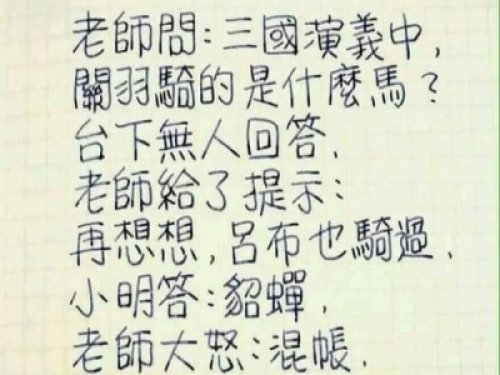 老師問:三國演義中,
關羽騎的是什麼馬?
台下無人回答,
老師給了提示:
再想想,呂布也騎過,
小明答:貂蟬,
老師大怒:混帳,